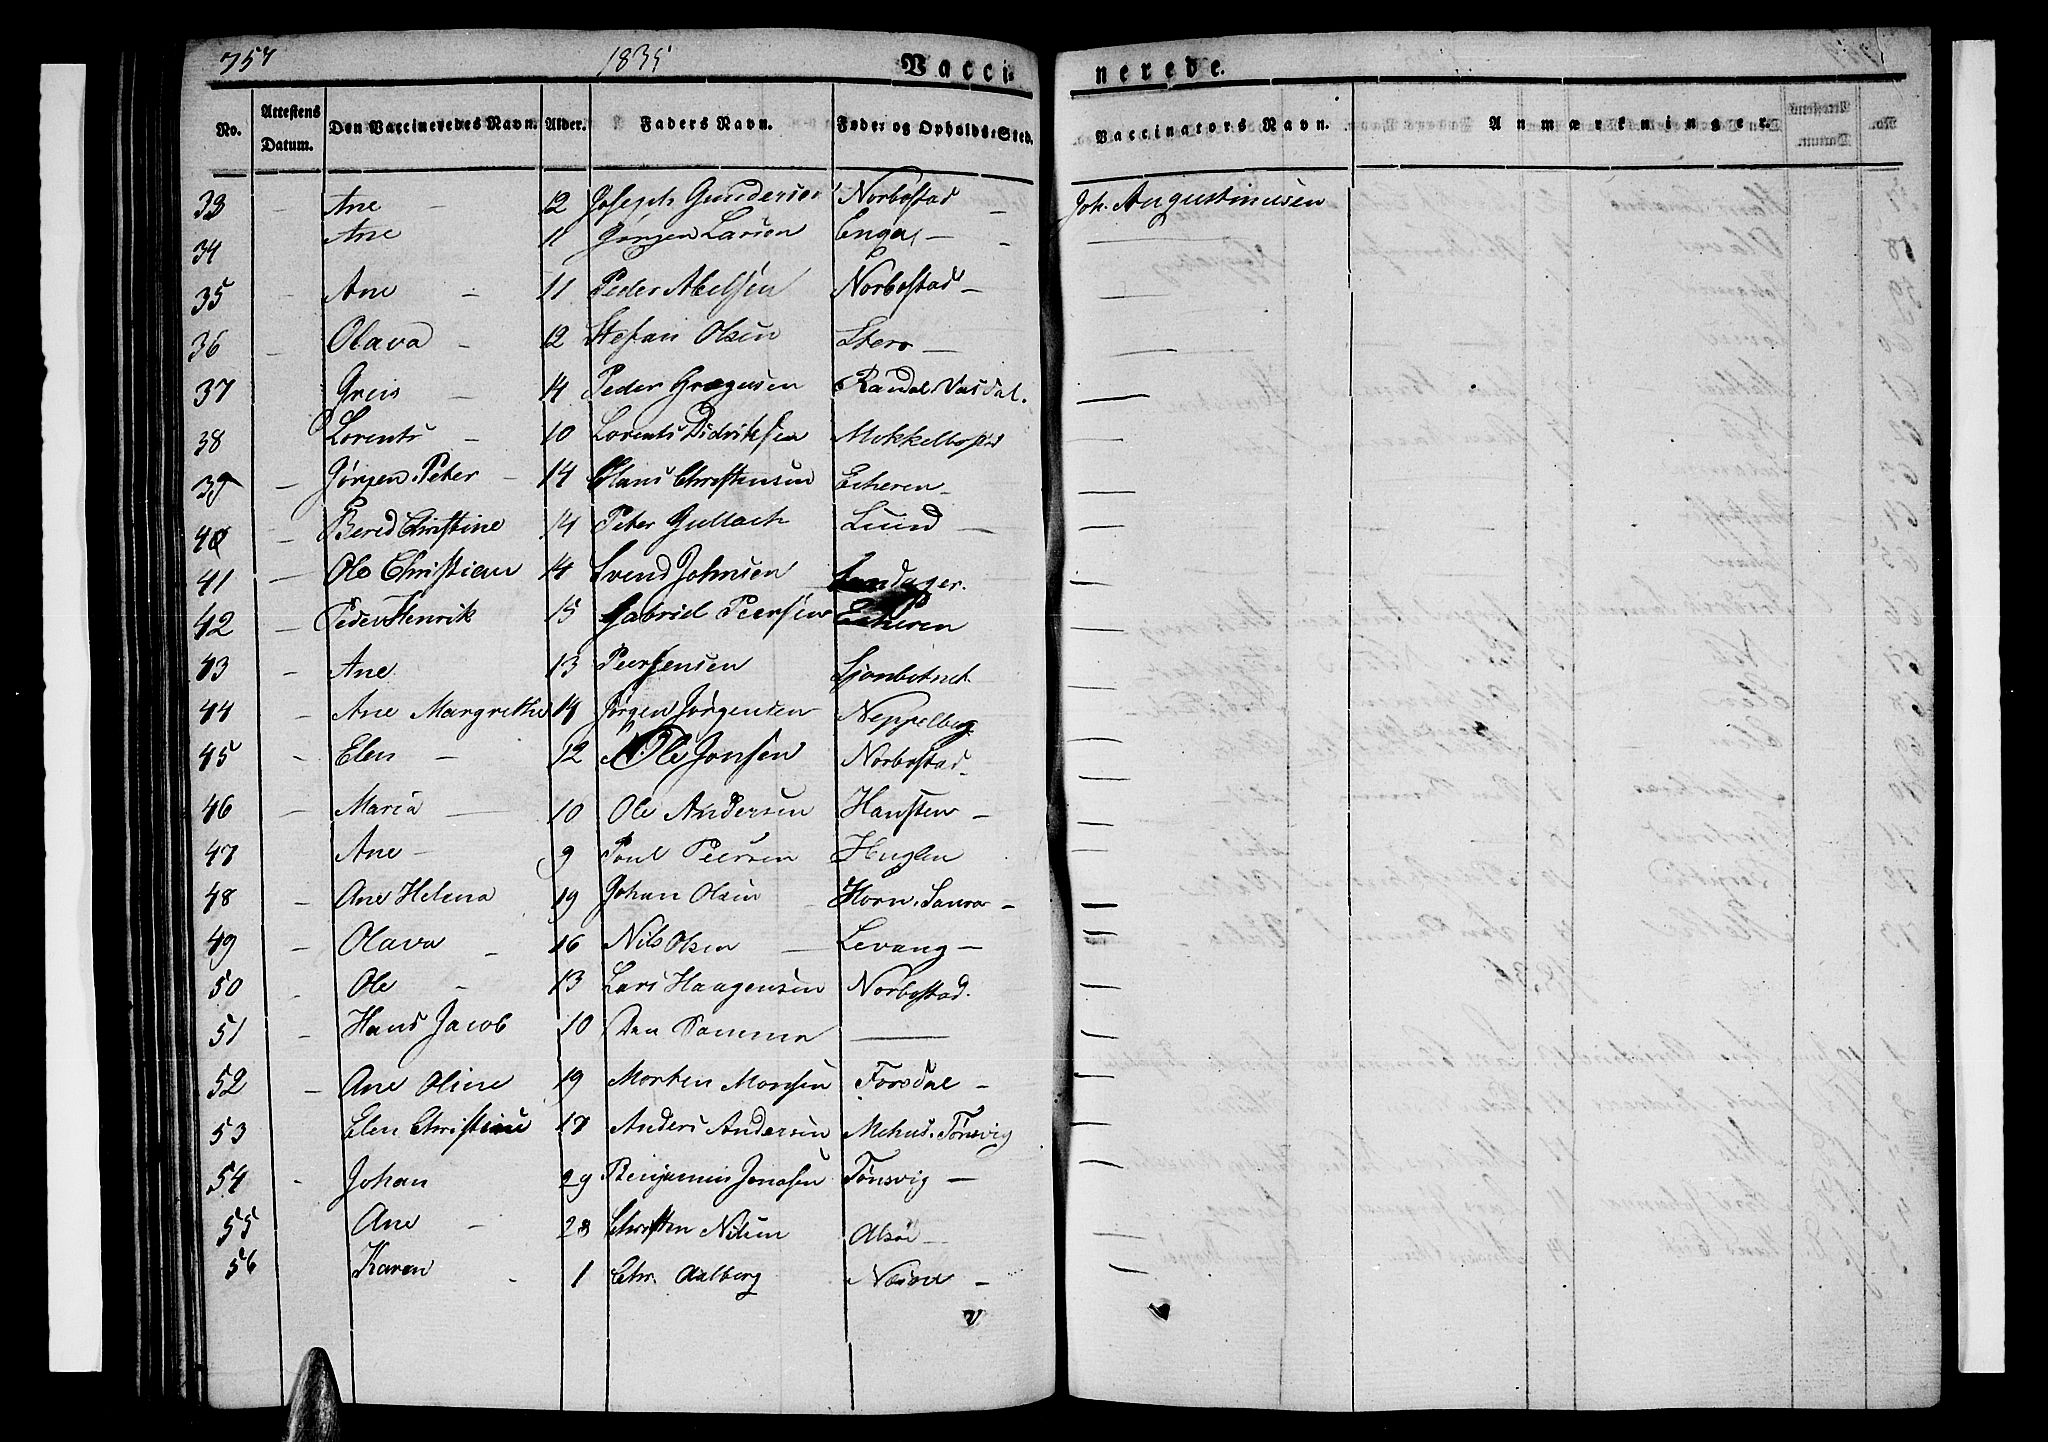 757 1835 Vacci- nerede.
No. Attestens Datum. Den Vaccineredes Navn. Alder. Faders Navn. Føde- og Opholds-Sted. Vaccinators Navn. Anmærkninger.
33 - Ane - 12 Joseph Gundersen Norbostad - Joh. Augustinusen
34 Ane 11 Jørgen Larsen - -
35 - Ane - 11 Peder Abelsen Norbostad - -
36 - Olava - 12 Stefan Olsen - -
37 - Greis - 14 Peder Gregusen Randal. Vasdal. -
38 Lorents - 10 Lorents Didriksen Mokkelbostad -
39 - Jørgen Peter - 14 Christensen -
40 - Bered Christine 14 Peter Lund - -
41 - Ole Christian 14 Svend Johnsen Sandager. -
42 - Peder Henrik 15 Gabriel Peersen
43 - Ane 13 Peer Jensen Sjonbotnet -
44 - Ane Margrethe 14 Jørgen Jørgensen Neppelberg -
45 - Elen - 12 Ole Jonsen Norbostad - -
46 - Maria - 10 Ole Andersen Hansten - -
47 - Ane - 9 Poul Peersen Huglen -
48 - Ane Helena 19 Johan Olsen - Horn. -
49 - Olava - 16 Nils Olsen - Levang - -
50 - Ole - 13 Lars Haagensen Norbostad. -
51 - Hans Jacob 10 Den Samme - -
52 - Ane Oline 19 Morten Monsen Forsdal - -
53 Elen Christine 17 Anders Andersen Mehus. Tønsvig -
54 - Johan 29 Benjamin Jonasen Tønsvig - -
55 Ane - 28 Christen Nilsen - -
56 Karen - 1 Chr. Aalberg - -